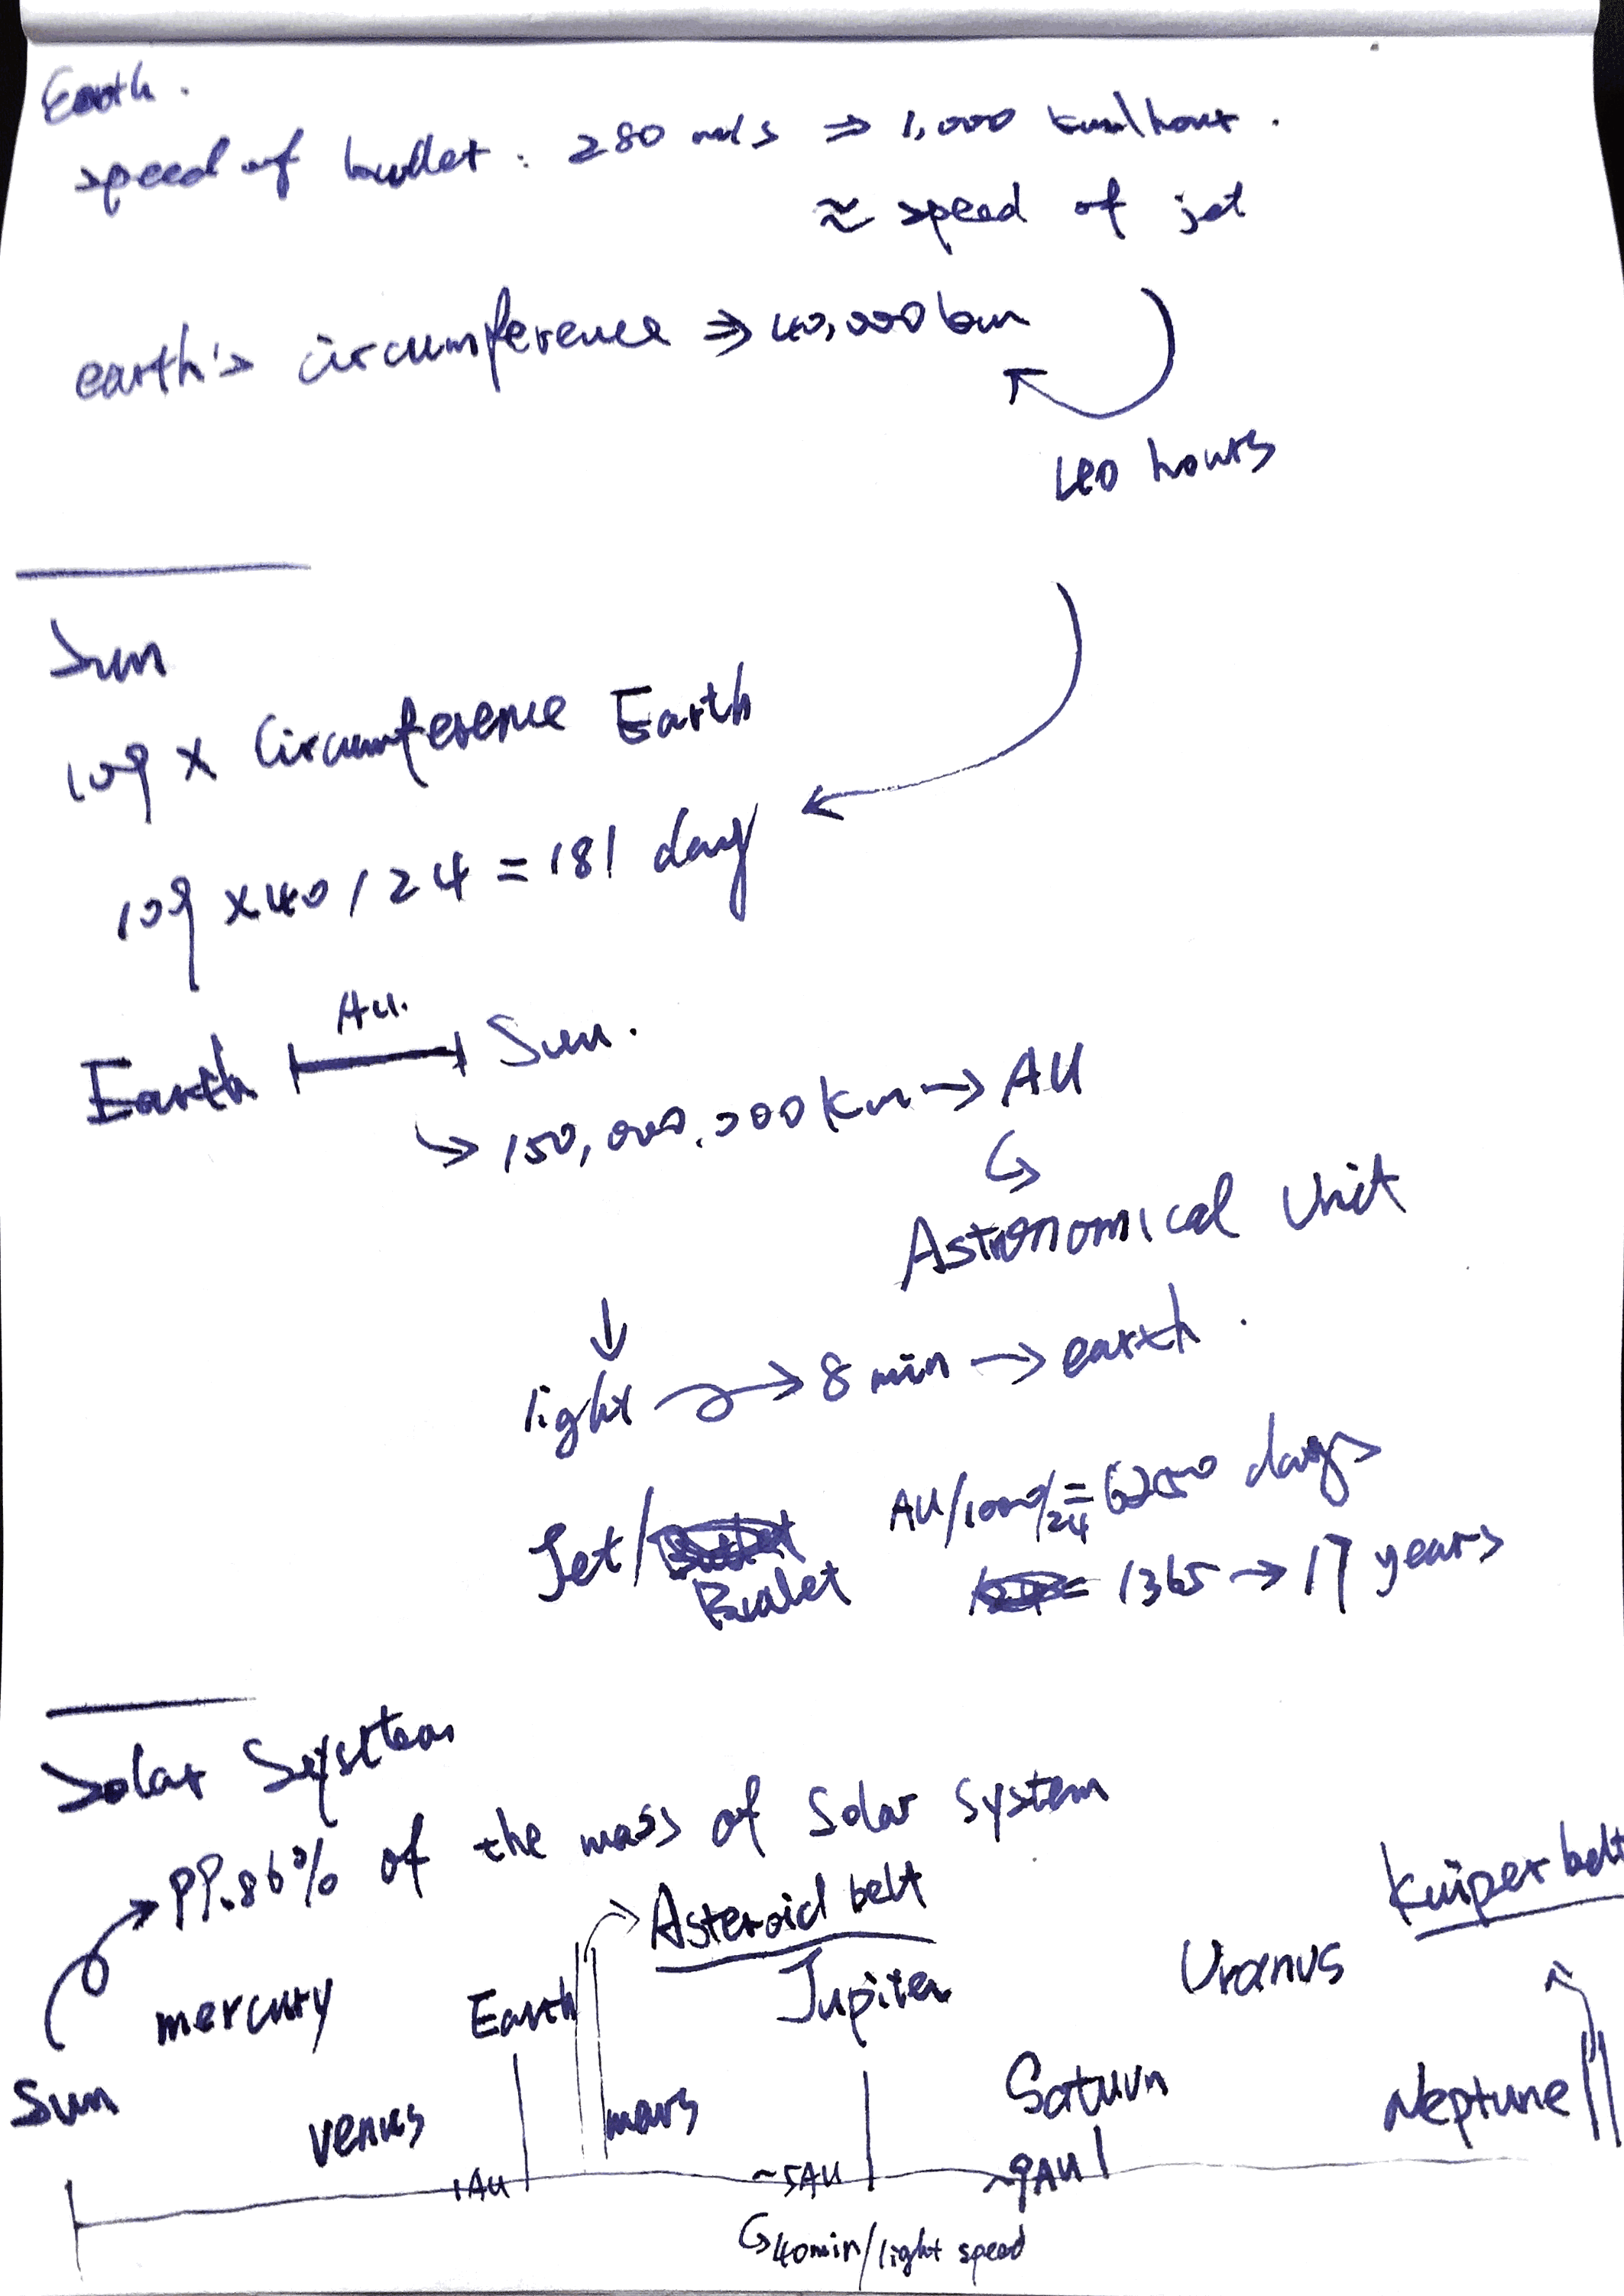 Earth.
speed of bullet : 280 m/s ⇒ 1,000 km/hour.
≈ speed of jet
earth's circumference ⇒ 40,000 km
40 hours
Sun
109 × Circumference Earth
109 × 40 / 24 = 181 day
Au.
Earth Sun.
↳ 150,000,000 Km → AU
↳
Astronomical Unit
↓
light → 8 min → earth.
Jet/ Bullet AU/1000/24 = 6250 days
= 1365 → 17 years
Solar System
→ 99.86% of the mass of Solar System
Asteroid belt
Kuiper belt
mercury Earth Jupiter Uranus
Sun venus mars Saturn Neptune
1AU ~5AU ~9AU
↳ 40min/light speed